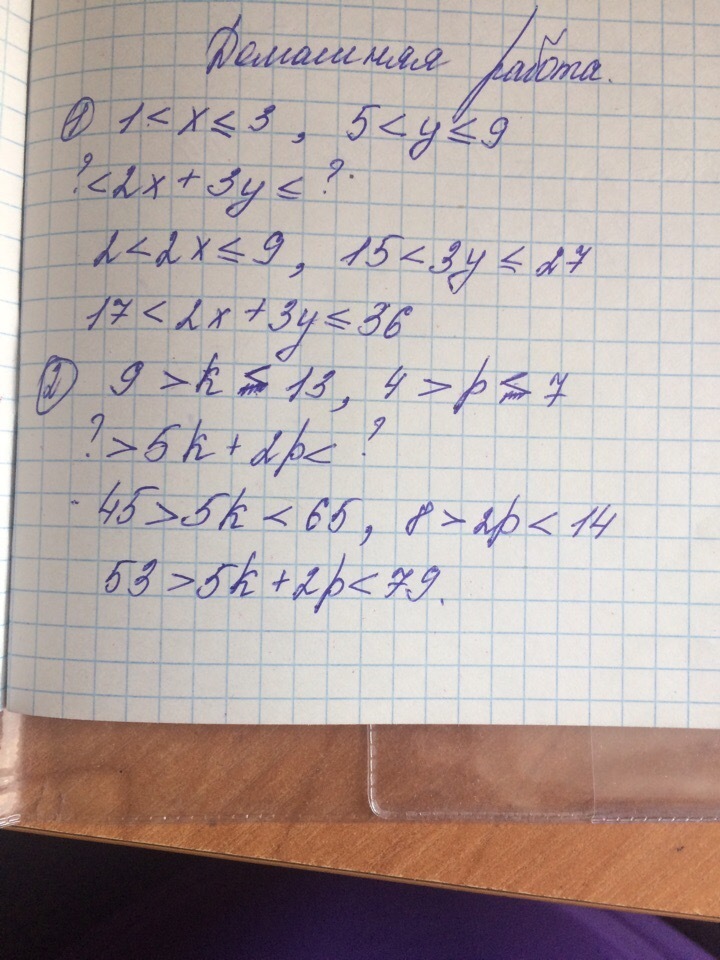 Домашняя работа.
① 1 < x ≤ 3, 5 < y ≤ 9
? < 2x + 3y ≤ ?
2 < 2x ≤ 9, 15 < 3y ≤ 27
17 < 2x + 3y ≤ 36
② 9 > k ≤ 13, 4 > p ≤ 7
? > 5k + 2p < ?
45 > 5k < 65, 8 > 2p < 14
53 > 5k + 2p < 79.